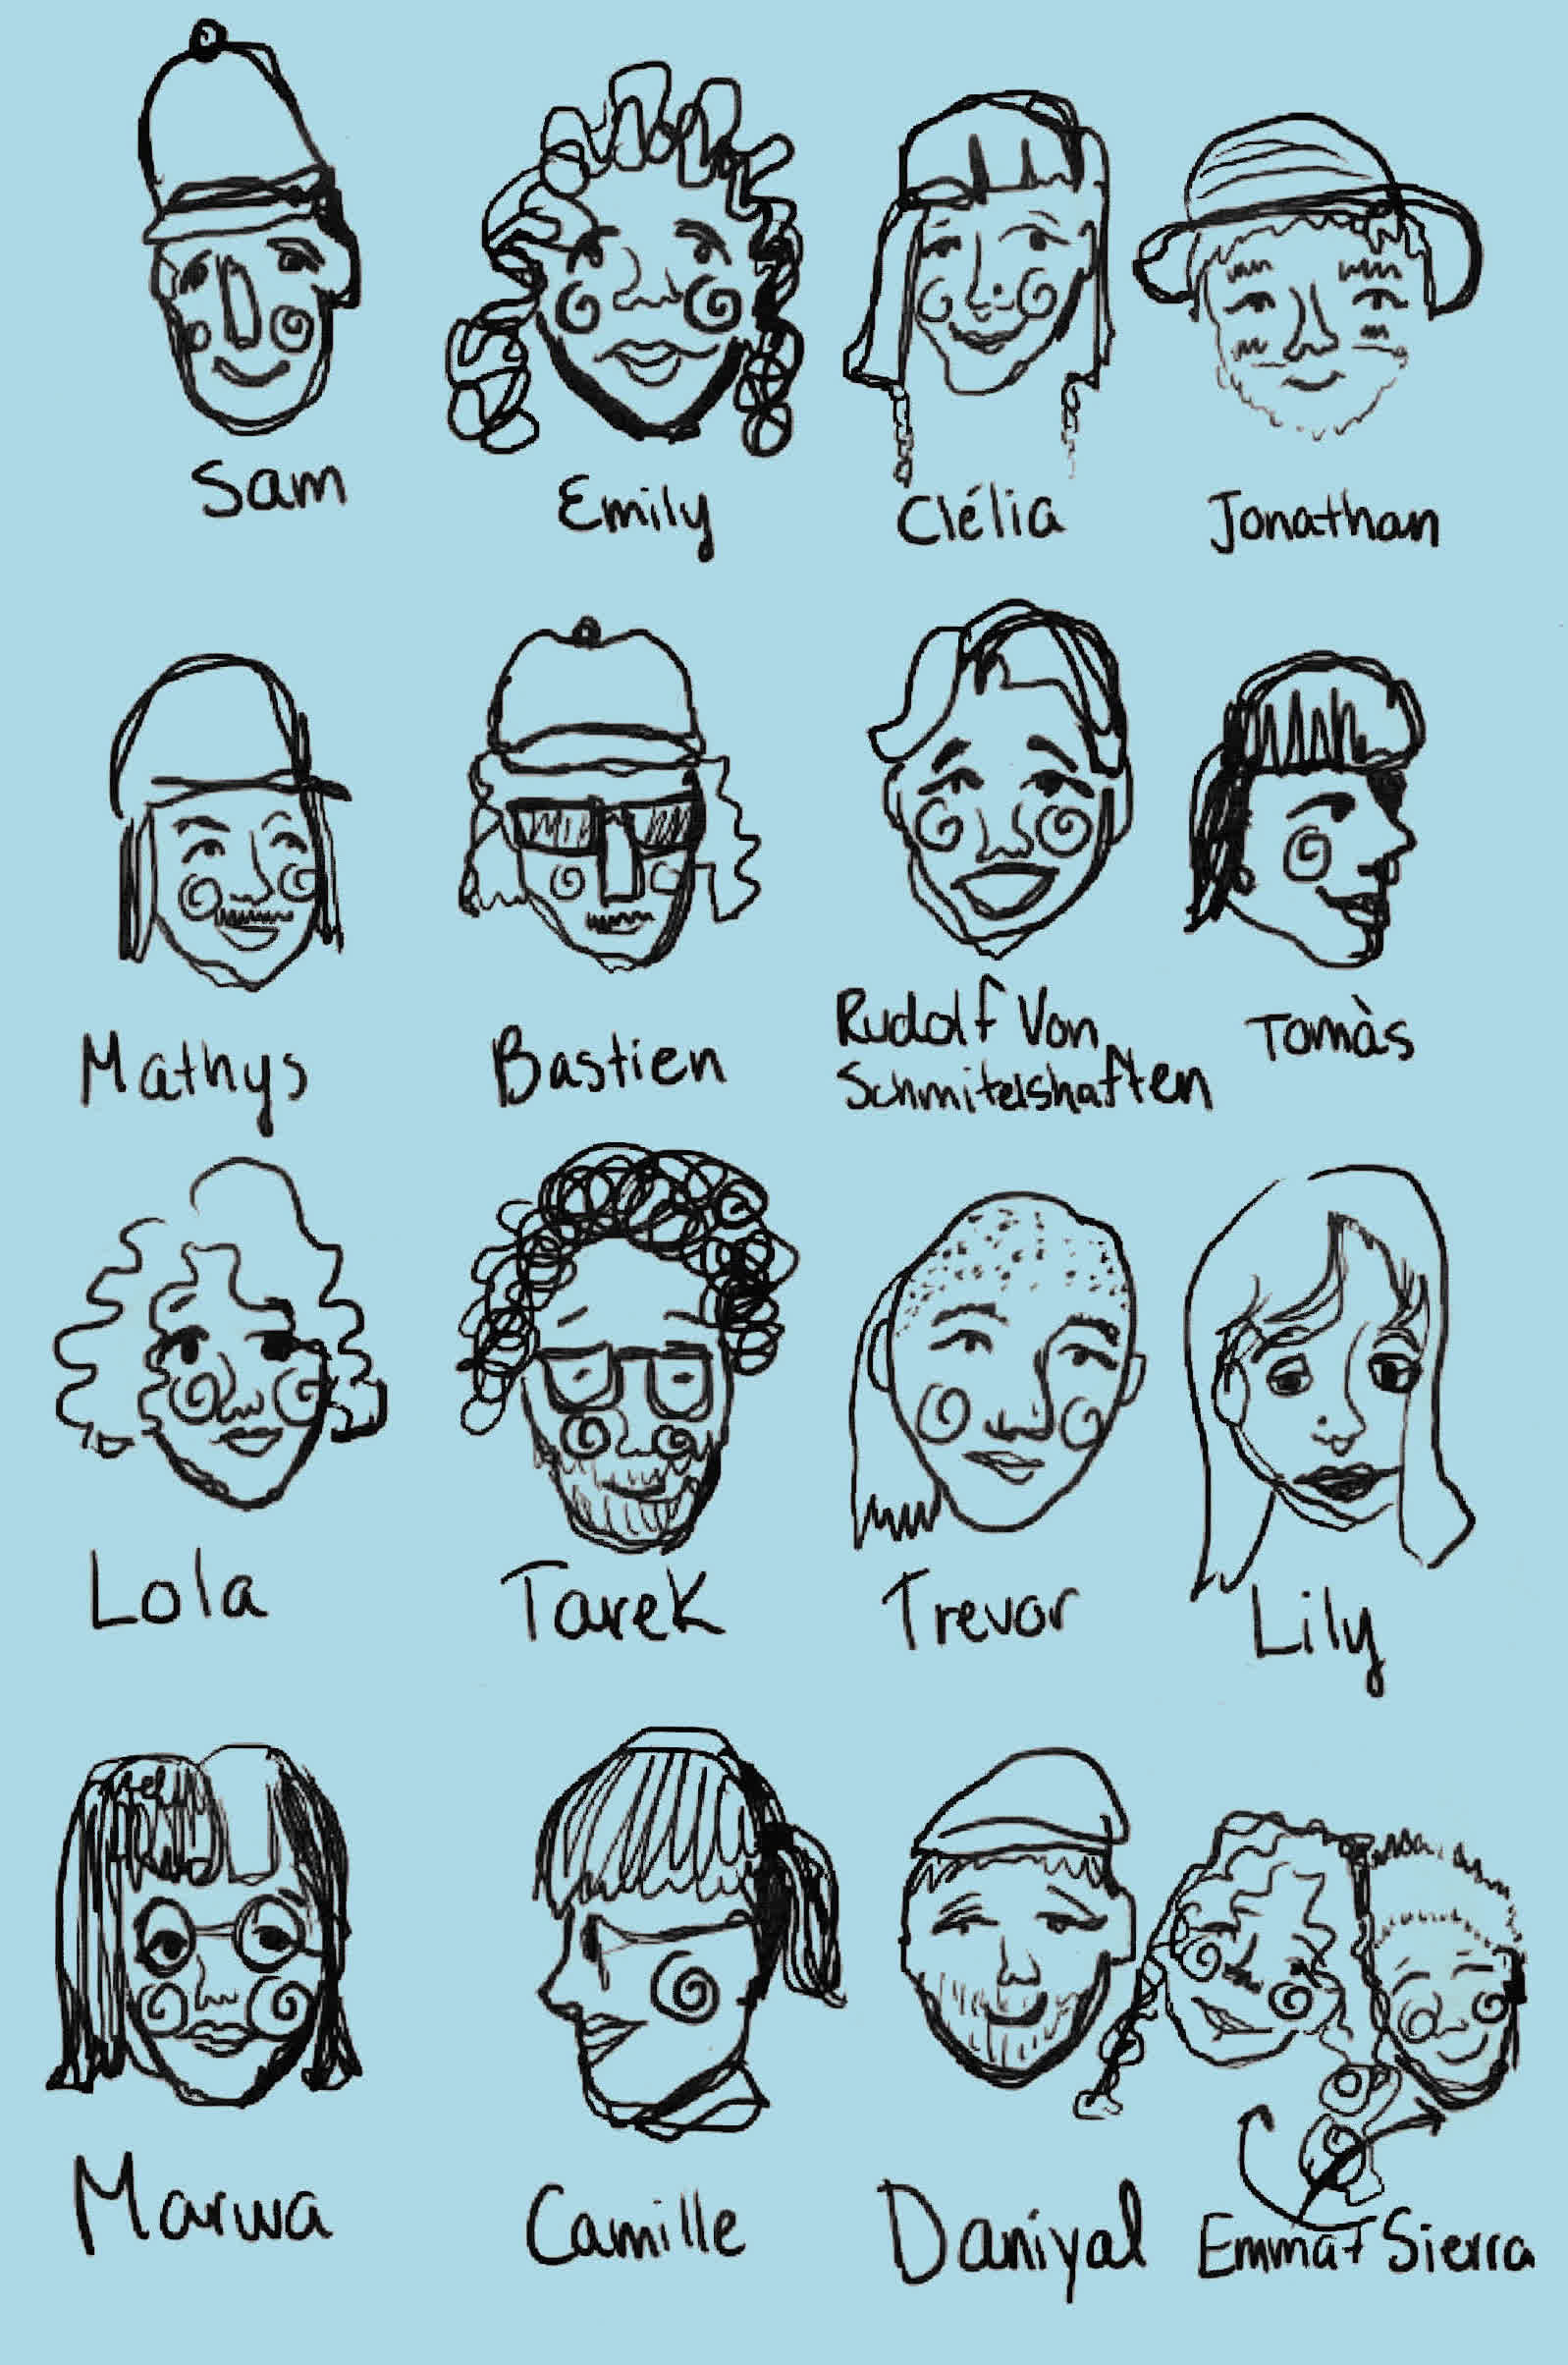 Sam
Emily
Clélia
Jonathan
Mathys
Bastien
Rudolf Von
Schmitelshaften
Tomàs
Lola
Tarek
Trevor
Lily
Marwa
Camille
Daniyal
Emma+Sierra